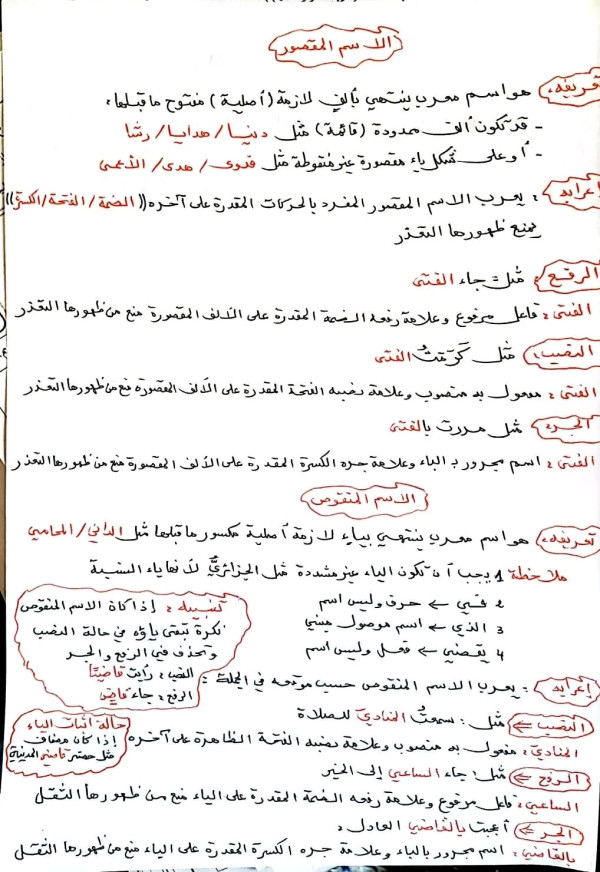 الاسم المقصور
تعريفه: هو اسم معرب ينتهي بألف لازمة (أصلية) مفتوح ما قبلها:
- قد تكون ألف ممدودة (قائمة) مثل دنيا / هدايا / رشا
- أو على شكل ياء مقصورة غير منقوطة مثل فتوى / هدى / الأعمى
إعرابه: يعرب الاسم المقصور المفرد بالحركات المقدرة على آخره ((الضمة / الفتحة / الكسرة))
يمنع ظهورها التعذر
الرفع: مثل: جاء الفتى
الفتى: فاعل مرفوع وعلامة رفعه الضمة المقدرة على الألف المقصورة منع من ظهورها التعذر
النصب: مثل كرّمتُ الفتى
الفتى: مفعول به منصوب وعلامة نصبه الفتحة المقدرة على الألف المقصورة منع من ظهورها التعذر
الجر: مثل مررت بالفتى
الفتى: اسم مجرور بـ الباء وعلامة جره الكسرة المقدرة على الألف المقصورة منع من ظهورها التعذر
الاسم المنقوص
تعريفه: هو اسم معرب ينتهي بياء لازمة أصلية مكسور ما قبلها مثل الداني / المحامي
ملاحظة 1 يجب أن تكون الياء غير مشددة مثل الجزائريّ لأنها ياء النسبة
2 في ← حرف وليس اسم
3 الذي ← اسم موصول مبني
4 يقضي ← فعل وليس اسم
تنبيه: إذا كان الاسم المنقوص
نكرة تبقى ياؤه في حالة النصب
وتحذف في الرفع والجر
النصب: رأيت قاضيًا
الرفع: جاء قاضٍ
إعرابه: يعرب الاسم المنقوص حسب موقعه في الجملة:
النصب ← مثل: سمعتُ المناديَ للصلاة
المناديَ: مفعول به منصوب وعلامة نصبه الفتحة الظاهرة على آخره
حالة اثبات الياء
إذا كان مضاف
مثل حضر قاضي المدينة
الرفع ← مثل: جاء الساعي إلى الخير
الساعي: فاعل مرفوع وعلامة رفعه الضمة المقدرة على الياء منع من ظهورها الثقل
الجر ← أعجبت بالقاضي العادل:
بالقاضي: اسم مجرور بالباء وعلامة جره الكسرة المقدرة على الياء منع من ظهورها الثقل